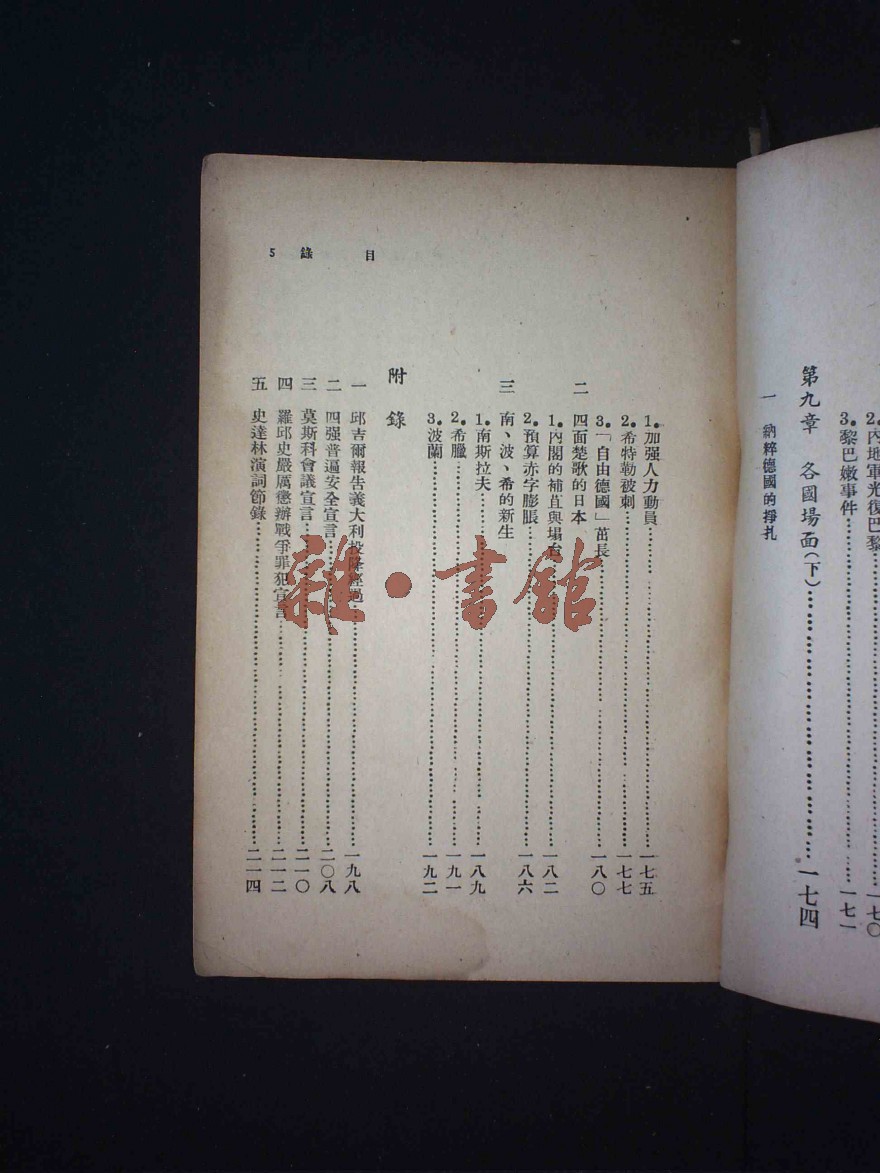 2.內地軍光復巴黎……一七〇
3.黎巴嫩事件……一七一
第九章 各國場面(下)……一七四
一 納粹德國的掙扎
目 錄 5
1.加强人力動員……一七五
2.希特勒被刺……一七七
3.「自由德國」茁長……一八〇
二 四面楚歌的日本
1.內閣的補苴與塌台……一八二
2.預算赤字膨脹……一八六
三 南、波、希的新生
1.南斯拉夫……一八九
2.希臘……一九一
3.波蘭……一九二
附錄
一 邱吉爾報告義大利投降經過……一九八
二 四强普遍安全宣言……二〇八
三 莫斯科會議宣言……二一〇
四 羅邱史嚴厲懲辦戰爭罪犯宣言……二一二
五 史達林演詞節錄……二一四
雜·書館